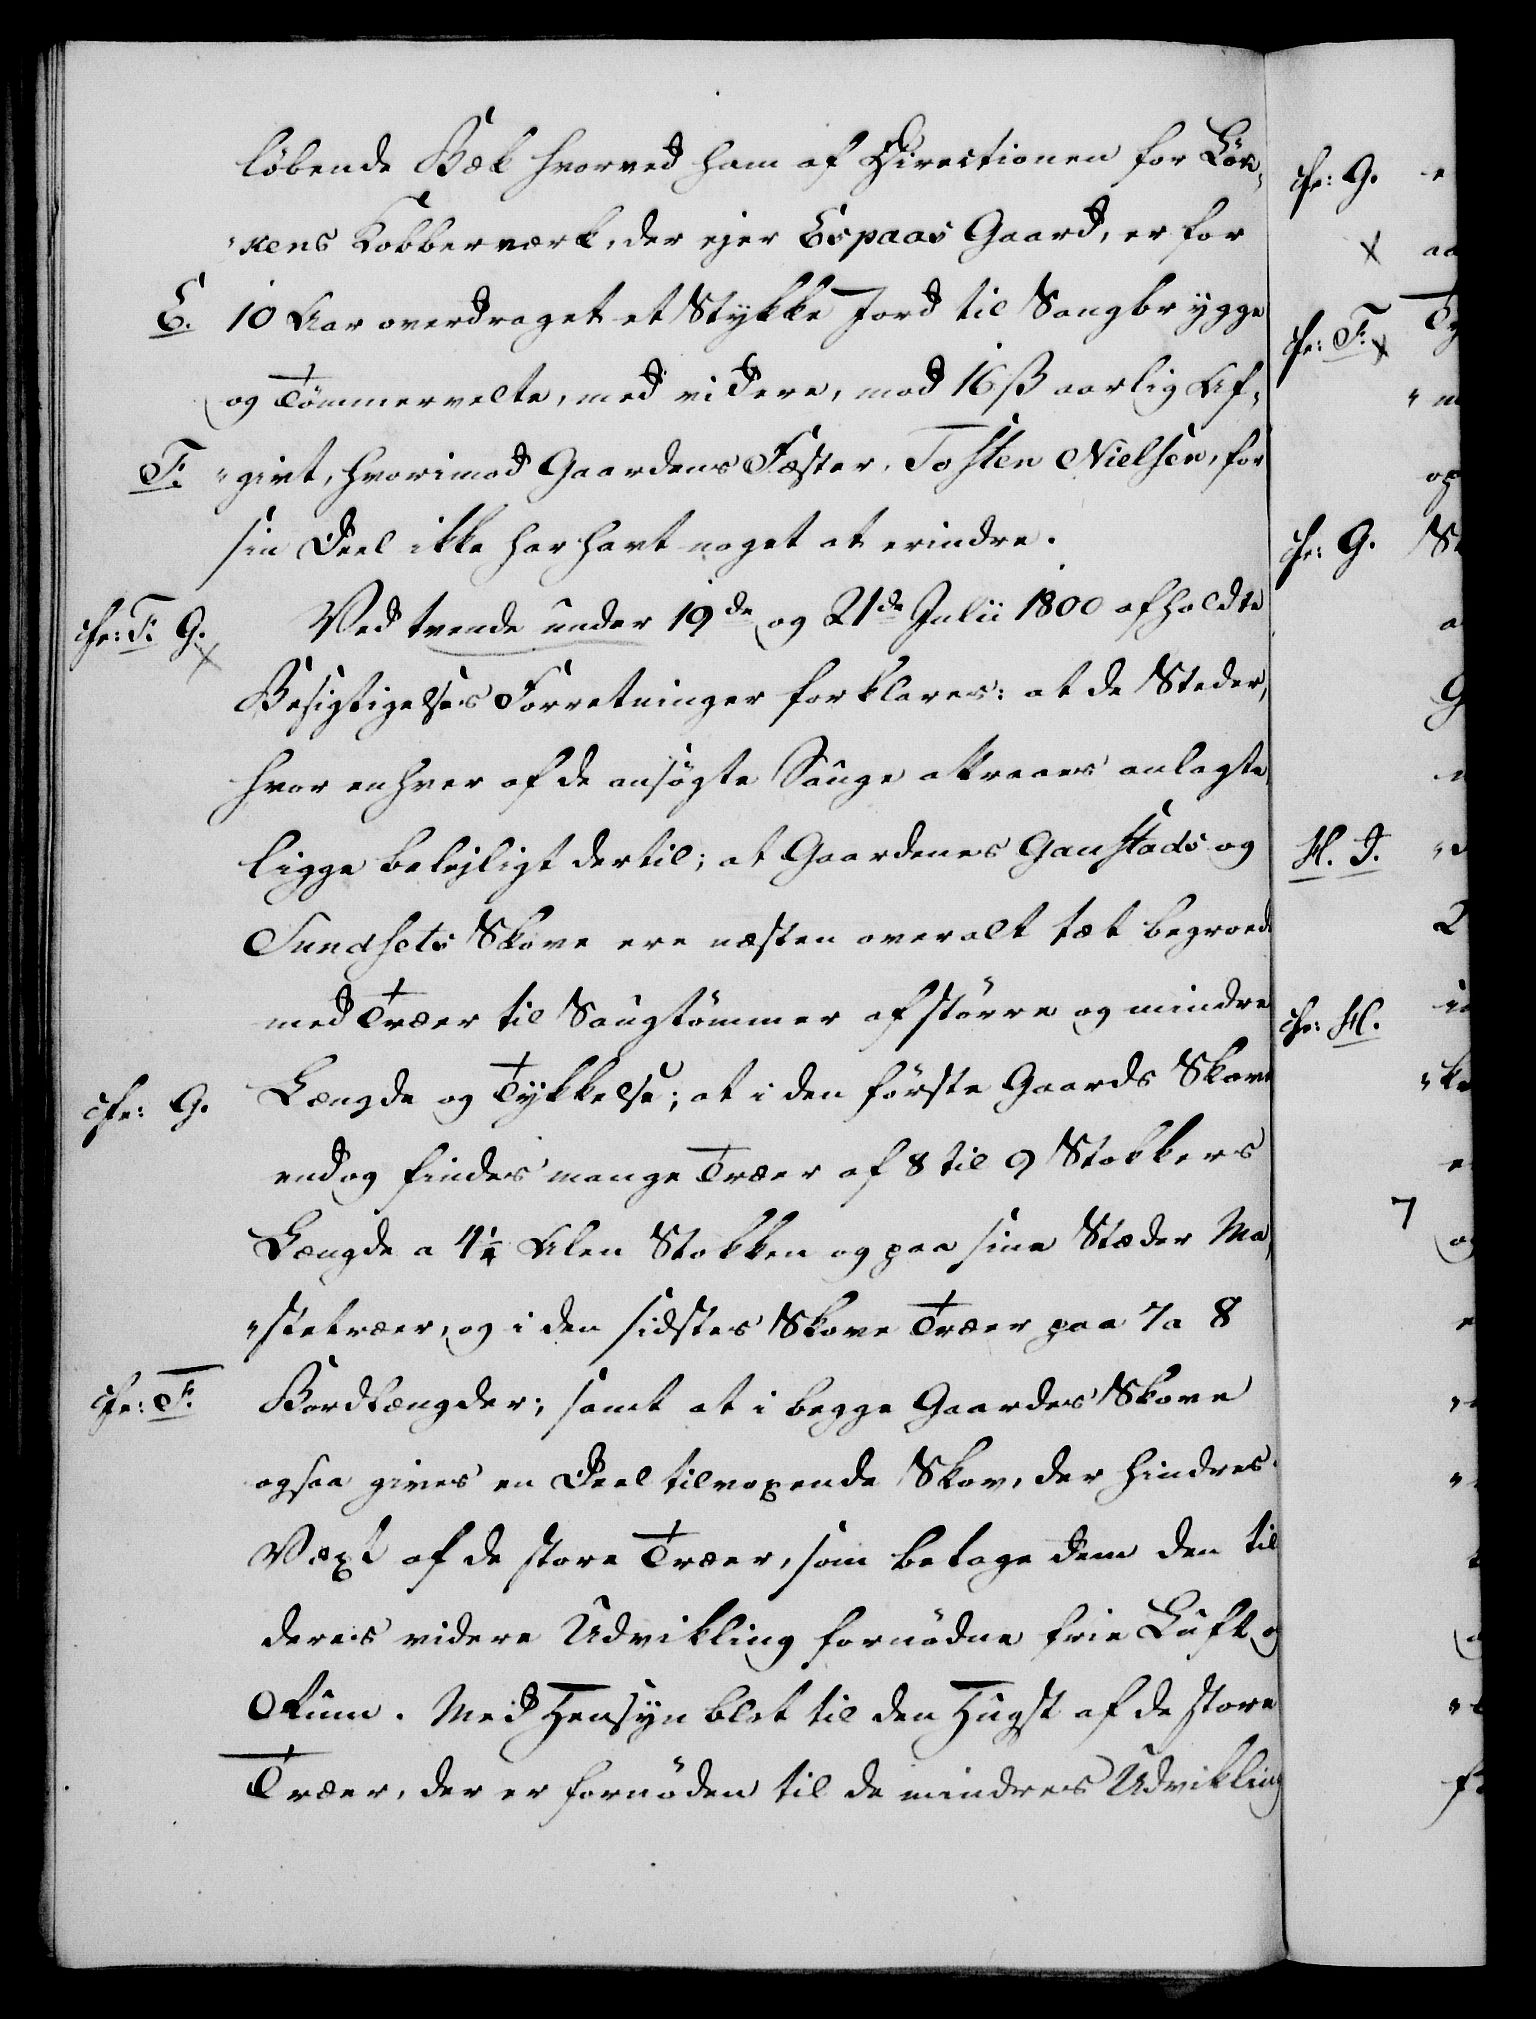 løbende Bæk hvorved ham af Directionen for Løk-
"kens Kobberværk, der ejer Espaas Gaard, er for
E. 10 Aar overdraget et Stykke Jord til Saugbrygge
og Tömmervelte, med videre, mod 16 ß aarlig Af-
F. "givt, hvorimod Gaardens Fæster, Tosten Nielsen, for
sin Deel ikke har havt noget at erindre.
cfr: F. G. Ved tvende under 19de og 21de Julii 1800 afholdte
Besigtigelses Forretninger forklares: at de Steder,
hvor enhver af de ansøgte Sauge attraaes anlagte
ligge belejligt dertil; at Gaardenes Gaustads og
Sundsets Skove ere næsten overalt tæt begroed
med Træer til Saugtömmer af større og mindre
cfr: G. Længde og Tykkelse; at i den förste Gaards Skove
endog findes mange Træer af 8 til 9 Stokkers
Længde a 4 1/4 Alen Stokken og paa sine Stæder Ma-
"stetræer, og i den sidstes Skove Træer paa 7 a 8
cfr: F. Bordlængder; samt at i begge Gaardes Skove
ogsaa gives en Deel tilvoxende Skov, der hindres
Væxt af de store Træer, som betage dem den til
deres videre Udvikling fornødne frie Luft og
Rum. Med Hensyn blot til den Hugst af de store
Træer, der er fornøden til de mindres Udvikling
cfr: G.
cfr: F.
cfr: G.
H. I.
cfr: H.